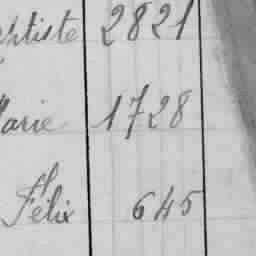 aptiste 2821
Marie 1728
Félix 645